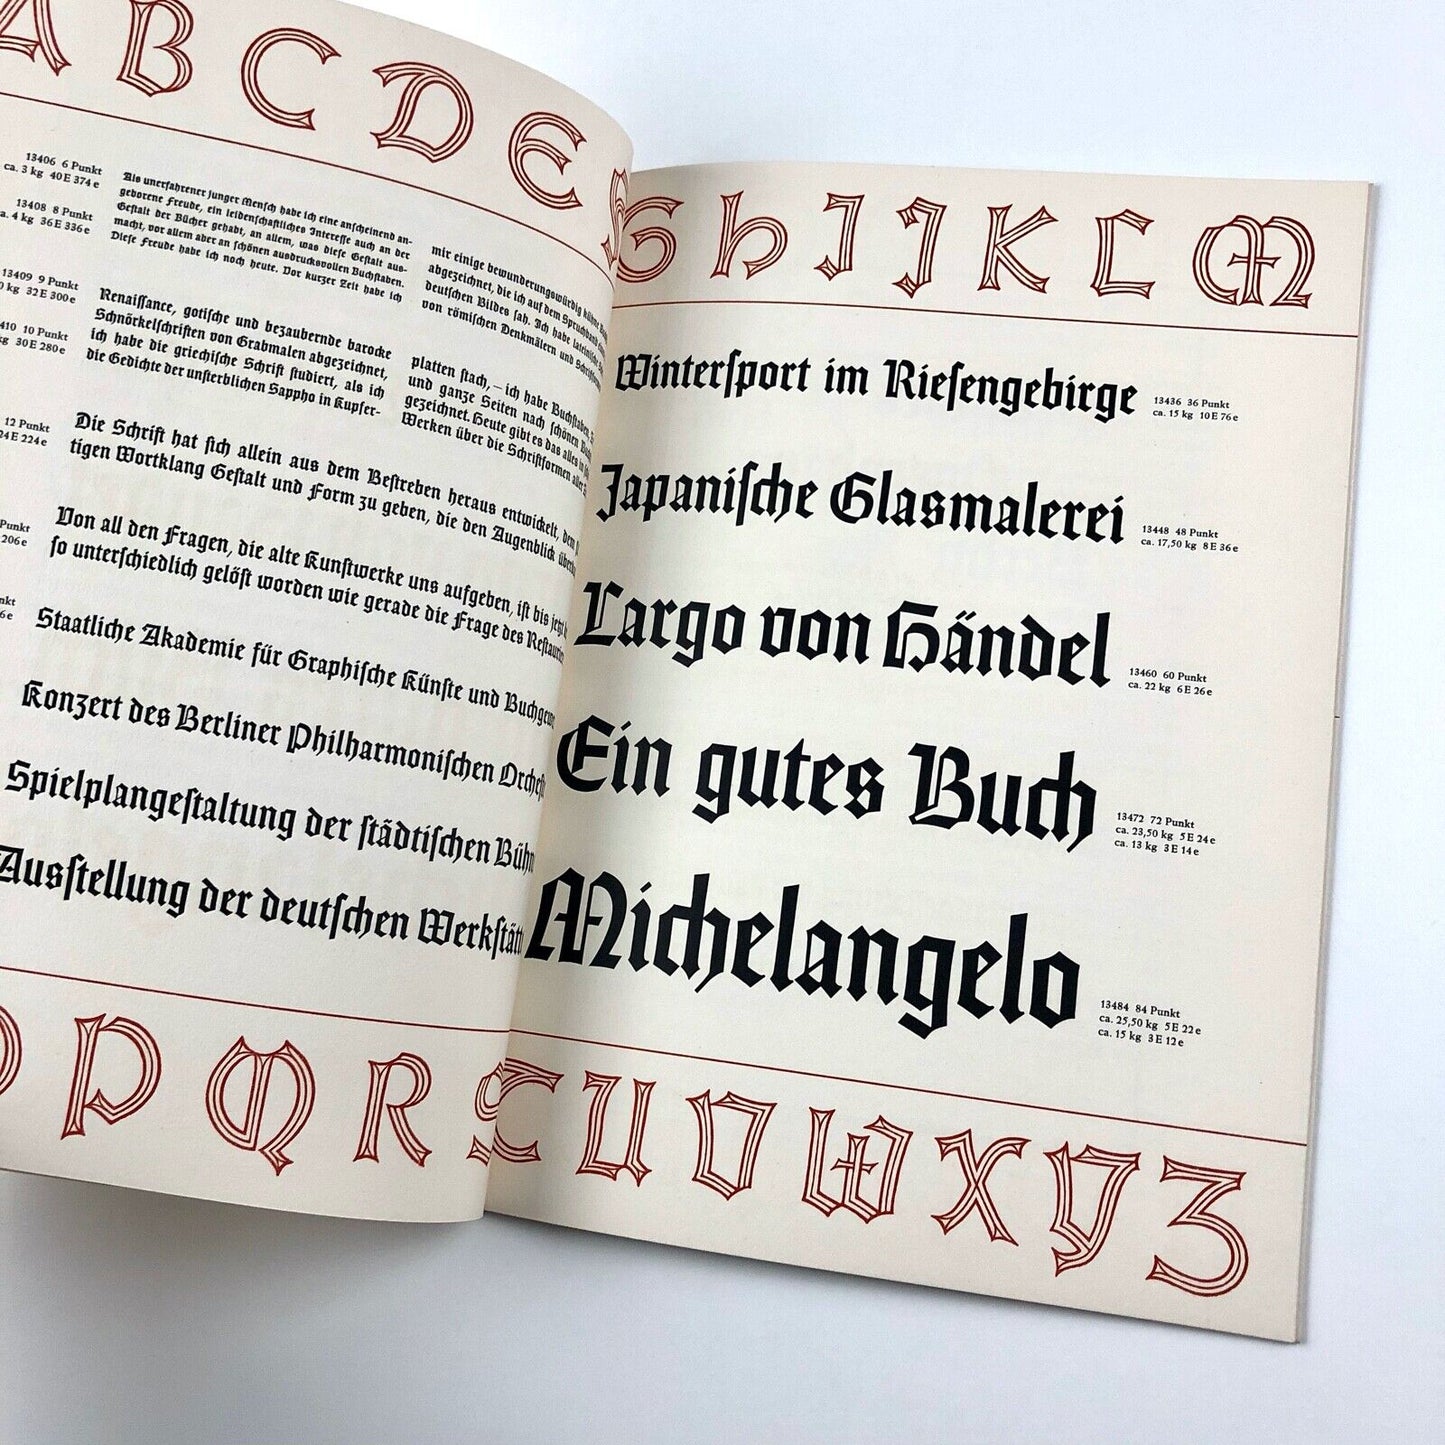 A B C D E
13406 6 Punkt
ca. 3 kg 40 E 374 e
Als unerfahrener junger Mensch habe ich eine anscheinend an-
geborene Freude, ein leidenschaftliches Interesse auch an der
Gestalt der Bücher gehabt, an allem, was diese Gestalt aus-
macht, vor allem aber an schönen ausdrucksvollen Buchstaben.
Diese Freude habe ich noch heute. Vor kurzer Zeit habe ich
mir einige bewunderungswürdig kühne
abgezeichnet, die ich auf dem Spruchband
deutschen Bildes sah. Ich habe lateinische
von römischen Denkmälern und
13408 8 Punkt
ca. 4 kg 36 E 336 e
13409 9 Punkt
kg 32 E 300 e
Renaissance, gotische und bezaubernde barocke
Schnörkelschriften von Grabmalen abgezeichnet,
ich habe die griechische Schrift studiert, als ich
die Gedichte der unsterblichen Sappho in Kupfer-
platten stach, – ich habe Buchstaben,
und ganze Seiten nach schönen
gezeichnet. Heute gibt es das alles in
Werken über die Schriftformen aller
10 Punkt
kg 30 E 280 e
12 Punkt
24 E 224 e
Die Schrift hat sich allein aus dem Bestreben heraus entwickelt, dem
tigen Wortklang Gestalt und Form zu geben, die den Augenblick
Punkt
206 e
Von all den Fragen, die alte Kunstwerke uns aufgeben, ist bis jetzt
so unterschiedlich gelöst worden wie gerade die Frage des
Staatliche Akademie für Graphische Künste und
Konzert des Berliner Philharmonischen
Spielplangestaltung der städtischen
Ausstellung der deutschen
P Q R S
G H I J K L M
Wintersport im Riesengebirge
13436 36 Punkt
ca. 15 kg 10 E 76 e
Japanische Glasmalerei
13448 48 Punkt
ca. 17,50 kg 8 E 36 e
Largo von Händel
13460 60 Punkt
ca. 22 kg 6 E 26 e
Ein gutes Buch
13472 72 Punkt
ca. 23,50 kg 5 E 24 e
ca. 13 kg 3 E 14 e
Michelangelo
13484 84 Punkt
ca. 25,50 kg 5 E 22 e
ca. 15 kg 3 E 12 e
T U V W X Y Z